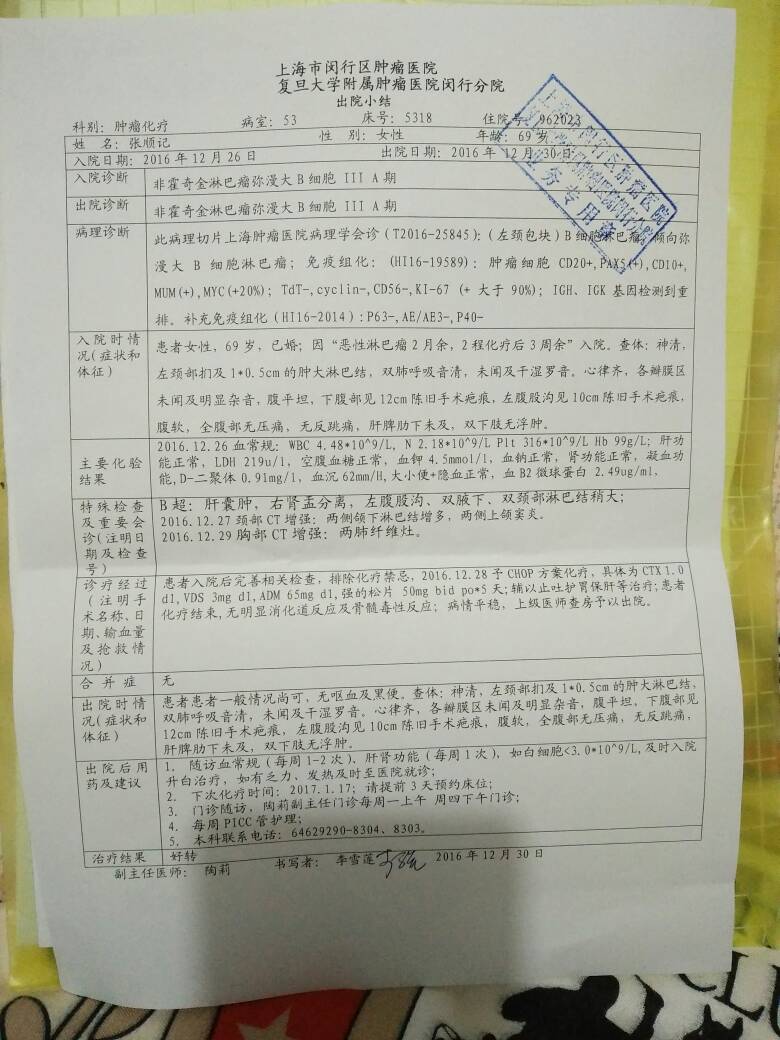 上海市闵行区肿瘤医院
复旦大学附属肿瘤医院闵行分院
出院小结
科别：肿瘤化疗 病室：53 床号：5318 住院号：962023
姓 名：张顺记 性 别：女性 年龄：69 岁
入院日期：2016 年 12 月 26 日 出院日期：2016 年 12 月 30 日
入院诊断 非霍奇金淋巴瘤弥漫大 B 细胞 III A 期
出院诊断 非霍奇金淋巴瘤弥漫大 B 细胞 III A 期
病理诊断 此病理切片上海肿瘤医院病理学会诊（T2016-25845）：（左颈包块）B 细胞淋巴瘤，倾向弥
漫大 B 细胞淋巴瘤；免疫组化：（HI16-19589）：肿瘤细胞 CD20+,PAX5(+),CD10+,
MUM(+),MYC(+20%)；TdT-,cyclin-,CD56-,KI-67 (+ 大于 90%)；IGH、IGK 基因检测到重
排。补充免疫组化（HI16-2014）：P63-,AE/AE3-,P40-
入院时情况(症状和体征)
患者女性，69 岁，已婚；因“恶性淋巴瘤 2 月余，2 程化疗后 3 周余”入院。查体：神清，
左颈部扪及 1*0.5cm 的肿大淋巴结，双肺呼吸音清，未闻及干湿罗音。心律齐，各瓣膜区
未闻及明显杂音，腹平坦，下腹部见 12cm 陈旧手术疤痕，左腹股沟见 10cm 陈旧手术疤痕，
腹软，全腹部无压痛，无反跳痛，肝脾肋下未及，双下肢无浮肿。
主要化验结果
2016.12.26 血常规：WBC 4.48*10^9/L, N 2.18*10^9/L Plt 316*10^9/L Hb 99g/L；肝功
能正常，LDH 219u/l，空腹血糖正常，血钾 4.5mmol/l，血钠正常，肾功能正常，凝血功
能,D-二聚体 0.91mg/l，血沉 62mm/H,大小便+隐血正常，血 B2 微球蛋白 2.49ug/ml，
特殊检查及重要会诊(注明日期及检查号)
B 超：肝囊肿，右肾盂分离，左腹股沟、双腋下、双颈部淋巴结稍大；
2016.12.27 颈部 CT 增强：两侧颌下淋巴结增多，两侧上颌窦炎。
2016.12.29 胸部 CT 增强：两肺纤维灶。
诊疗经过(注明手术名称、日期、输血量及抢救情况)
患者入院后完善相关检查，排除化疗禁忌，2016.12.28 予 CHOP 方案化疗，具体为 CTX 1.0
d1,VDS 3mg d1,ADM 65mg d1,强的松片 50mg bid po*5 天；辅以止吐护胃保肝等治疗；患者
化疗结束,无明显消化道反应及骨髓毒性反应；病情平稳，上级医师查房予以出院。
合 并 症 无
出院时情况(症状和体征)
患者患者一般情况尚可，无呕血及黑便。查体：神清，左颈部扪及 1*0.5cm 的肿大淋巴结，
双肺呼吸音清，未闻及干湿罗音。心律齐，各瓣膜区未闻及明显杂音，腹平坦，下腹部见
12cm 陈旧手术疤痕，左腹股沟见 10cm 陈旧手术疤痕，腹软，全腹部无压痛，无反跳痛，
肝脾肋下未及，双下肢无浮肿。
出院后用药及建议
1. 随访血常规（每周 1-2 次）、肝肾功能（每周 1 次），如白细胞<3.0*10^9/L,及时入院
升白治疗，如有乏力、发热及时至医院就诊；
2. 下次化疗时间：2017.1.17；请提前 3 天预约床位；
3. 门诊随访，陶莉副主任门诊每周一上午 周四下午门诊；
4. 每周 PICC 管护理；
5. 本科联系电话：64629290-8304、8303。
治疗结果 好转
副主任医师： 陶莉 书写者： 李雪莲 2016 年 12 月 30 日